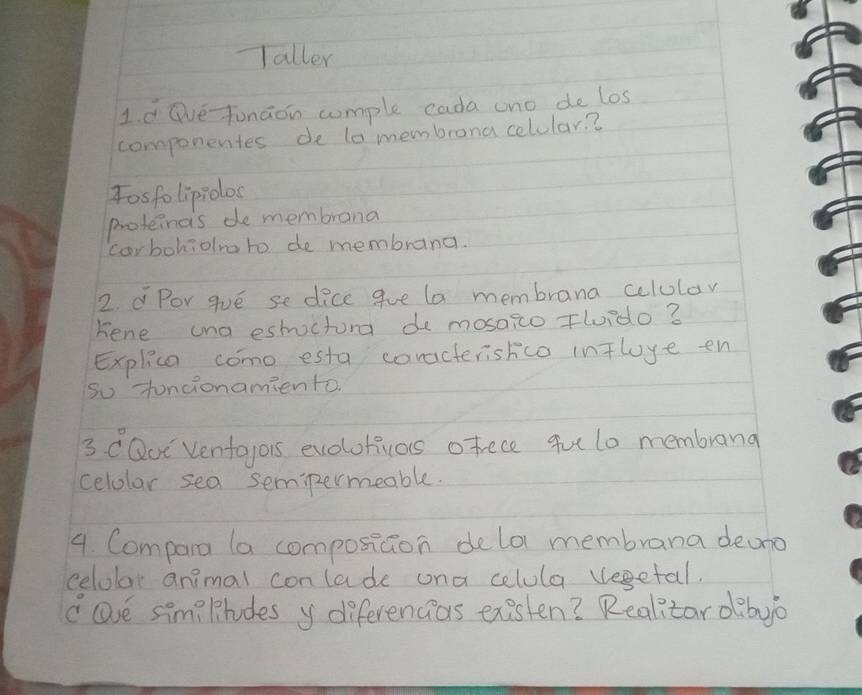 Taller
1. ¿Qué función cumple cada uno de los
componentes de la membrana celular?
Fosfolipidos
proteinas de membrana
carbohidrato de membrana.
2. ¿Por qué se dice que la membrana celular
tiene una estructura de mosaico Fluido?
Explica cómo esta caracteristica influye en
su funcionamiento.
3. ¿Qué ventajas evolutivas ofece que la membrana
celular sea semipermeable.
4. Compara la composición de la membrana de una
celular animal con la de una celula vegetal.
¿Qué similitudes y diferencias existen? Realizar dibujo